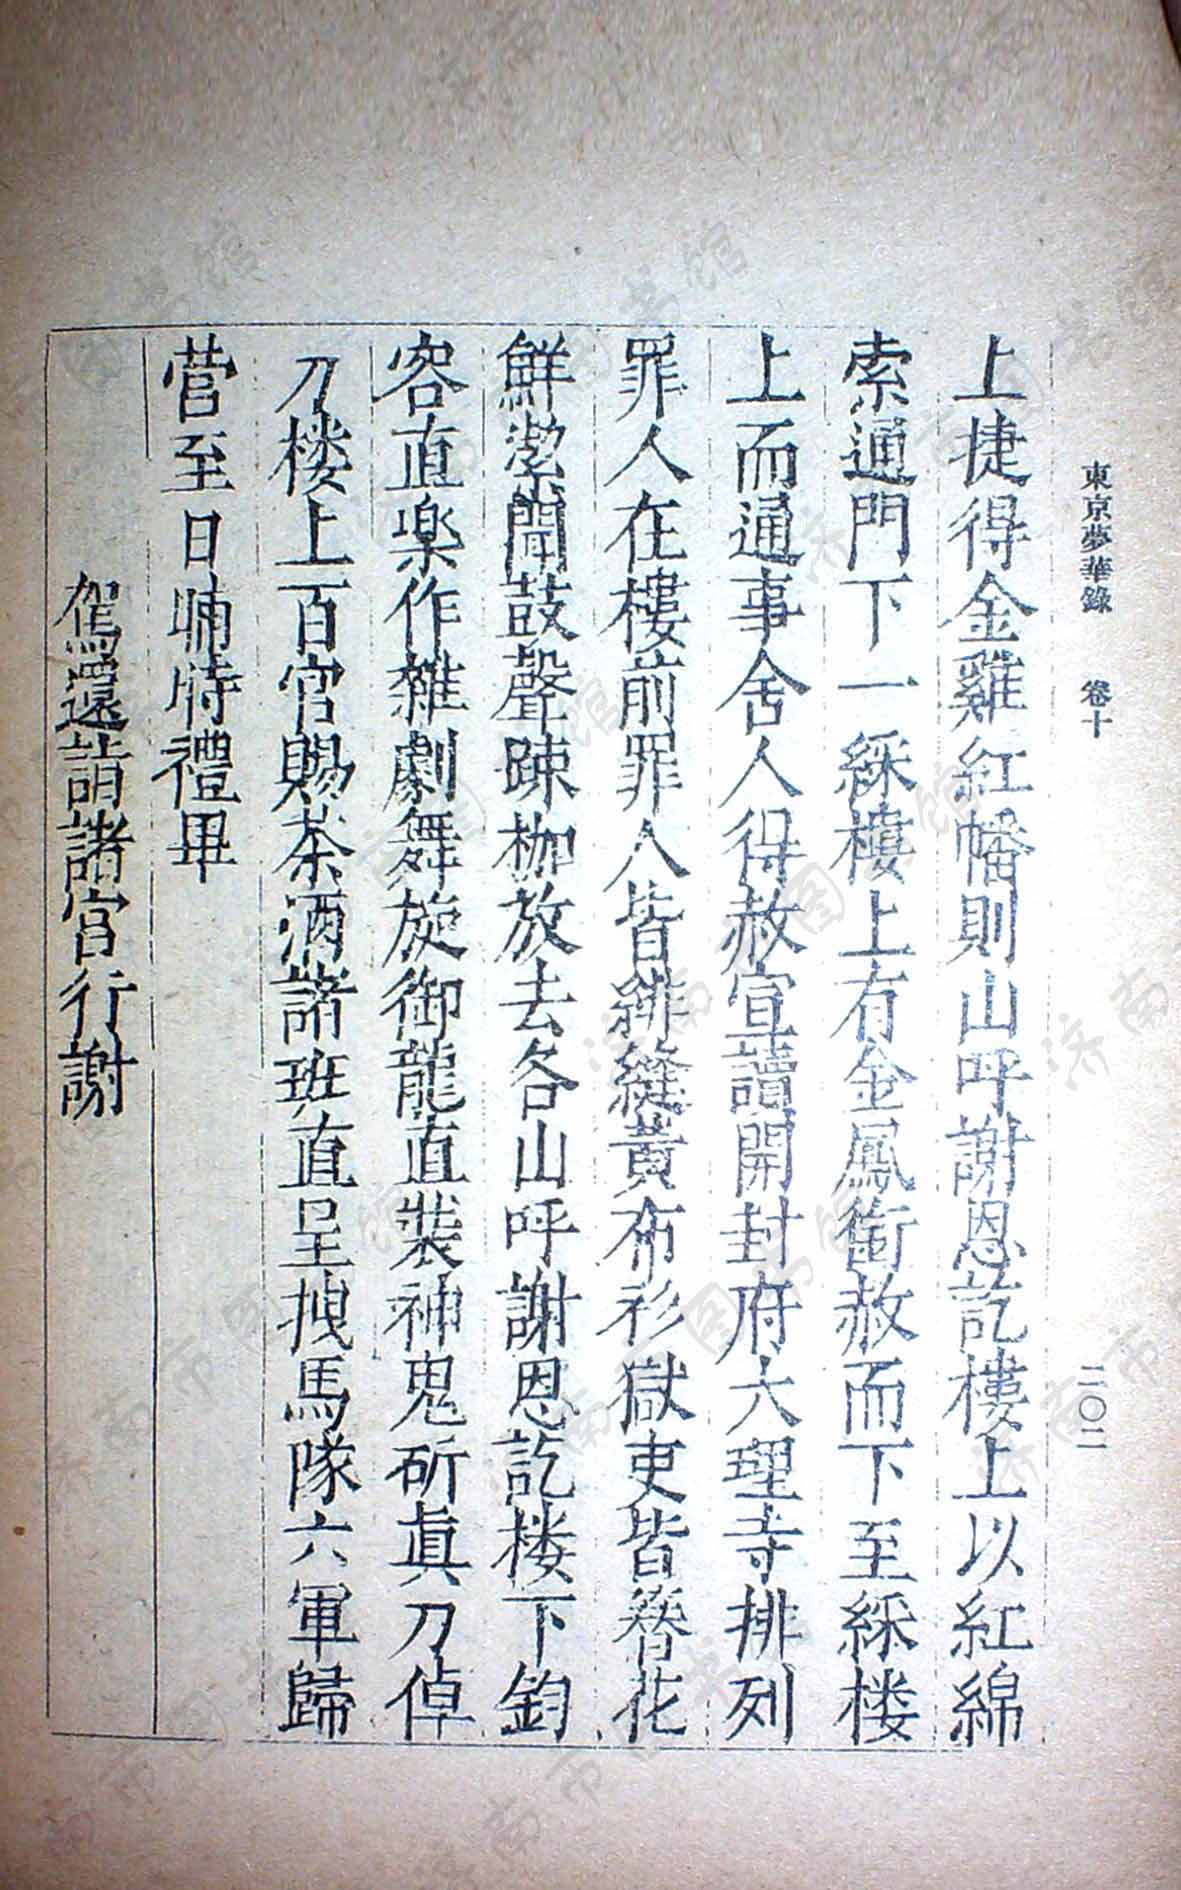 東京夢華錄 卷十 二〇二
上捷得金雞紅幡則山呼謝恩訖樓上以紅綿
索通門下一綵樓上有金鳳銜赦而下至綵楼
上而通事舍人得赦宣讀開封府大理寺排列
罪人在樓前罪人皆緋縫黃布衫獄吏皆簪花
鮮潔聞鼓聲踈枷放去各山呼謝恩訖楼下鈞
容直楽作雜劇舞旋御龍直裝神鬼斫眞刀倬
刀楼上百官賜茶酒諸班直呈拽馬隊六軍歸
營至日晡時禮畢
駕還詣諸宮行謝
济南市图书馆